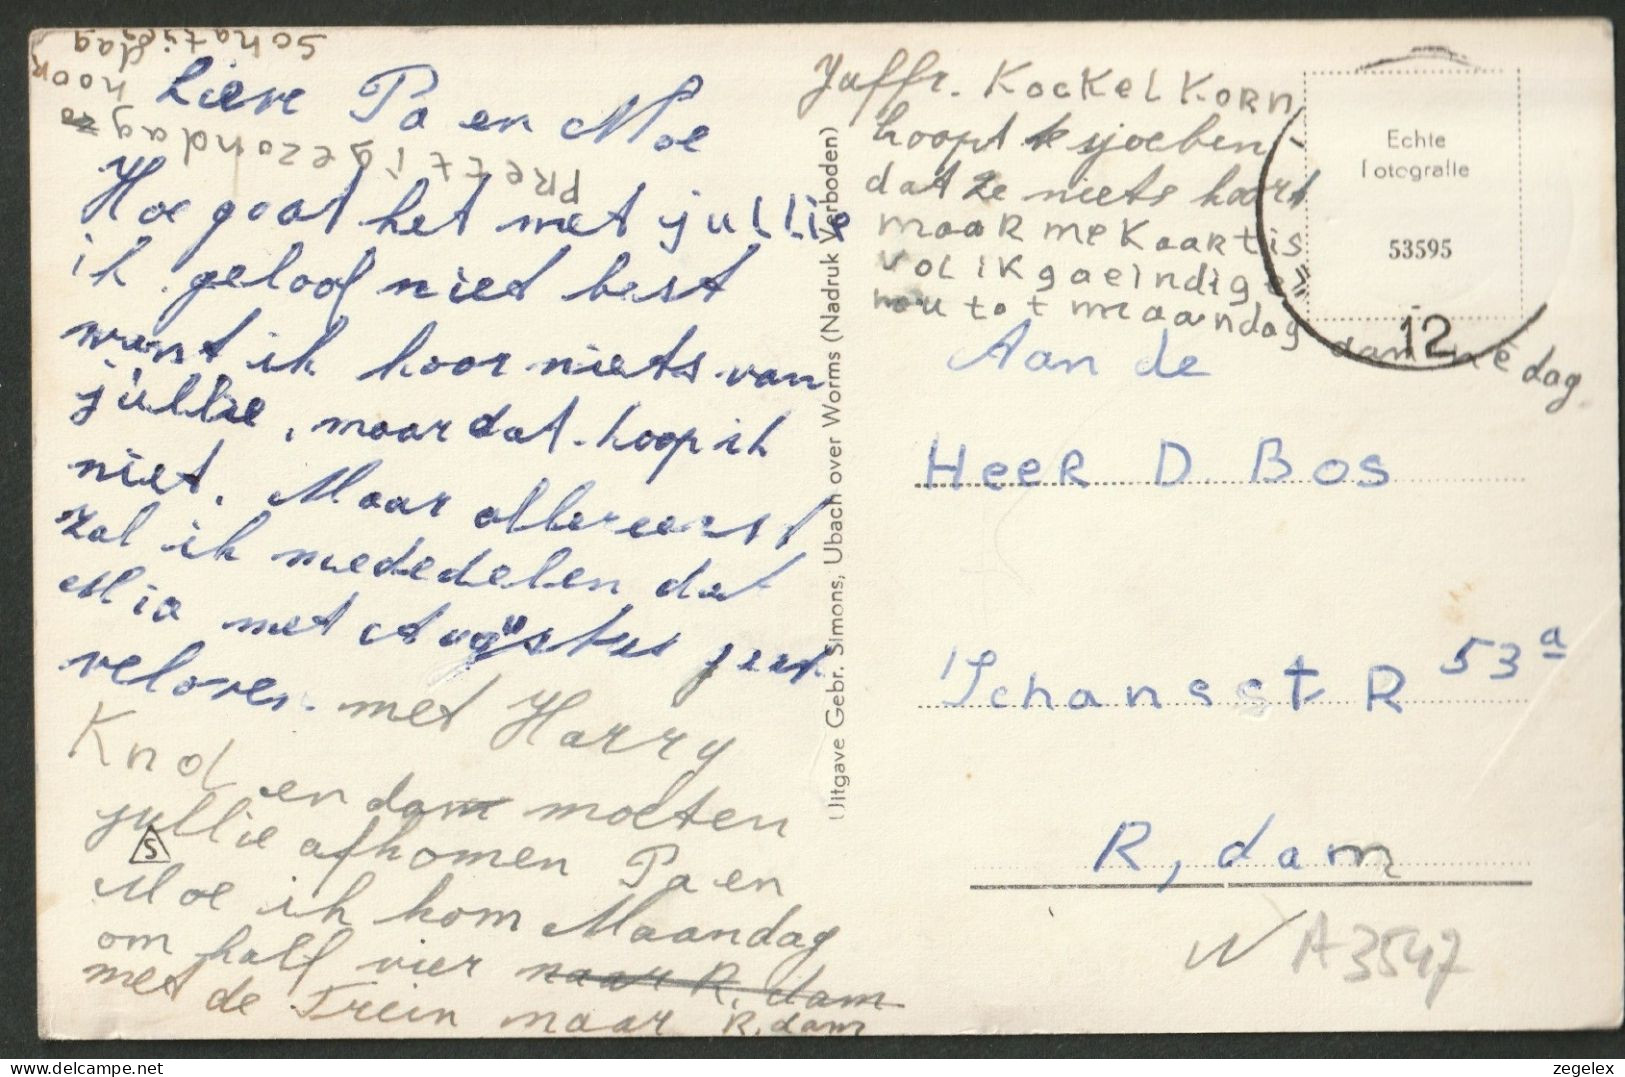 Schatjes dag
hoor
PRettige zondag
Lieve Pa en Moe
Hoe gaat het met jullie
ik geloof niet best
want ik hoor niets van
jullie, maar dat hoop ik
niet. Maar allereerst
zal ik mededelen dat
Mia met Augustus
veloren. met Harry
Knol en dam moeten
jullie afkomen Pa en
Moe ik kom Maandag
om half vier naar R, dam
met de Trein maar R, dam
S
Uitgave Gebr. Simons, Ubach over Worms (Nadruk Verboden)
Juffr. KockelKorn
hoopt
dat ze niets hoort
maar me Kaart is
vol ik ga eindige
nou tot maandag
dag
Echte
Fotografie
53595
12
Aan de
Heer D. Bos
Schansst R 53a
R, dam
A3547
zegelex.com
zegelex